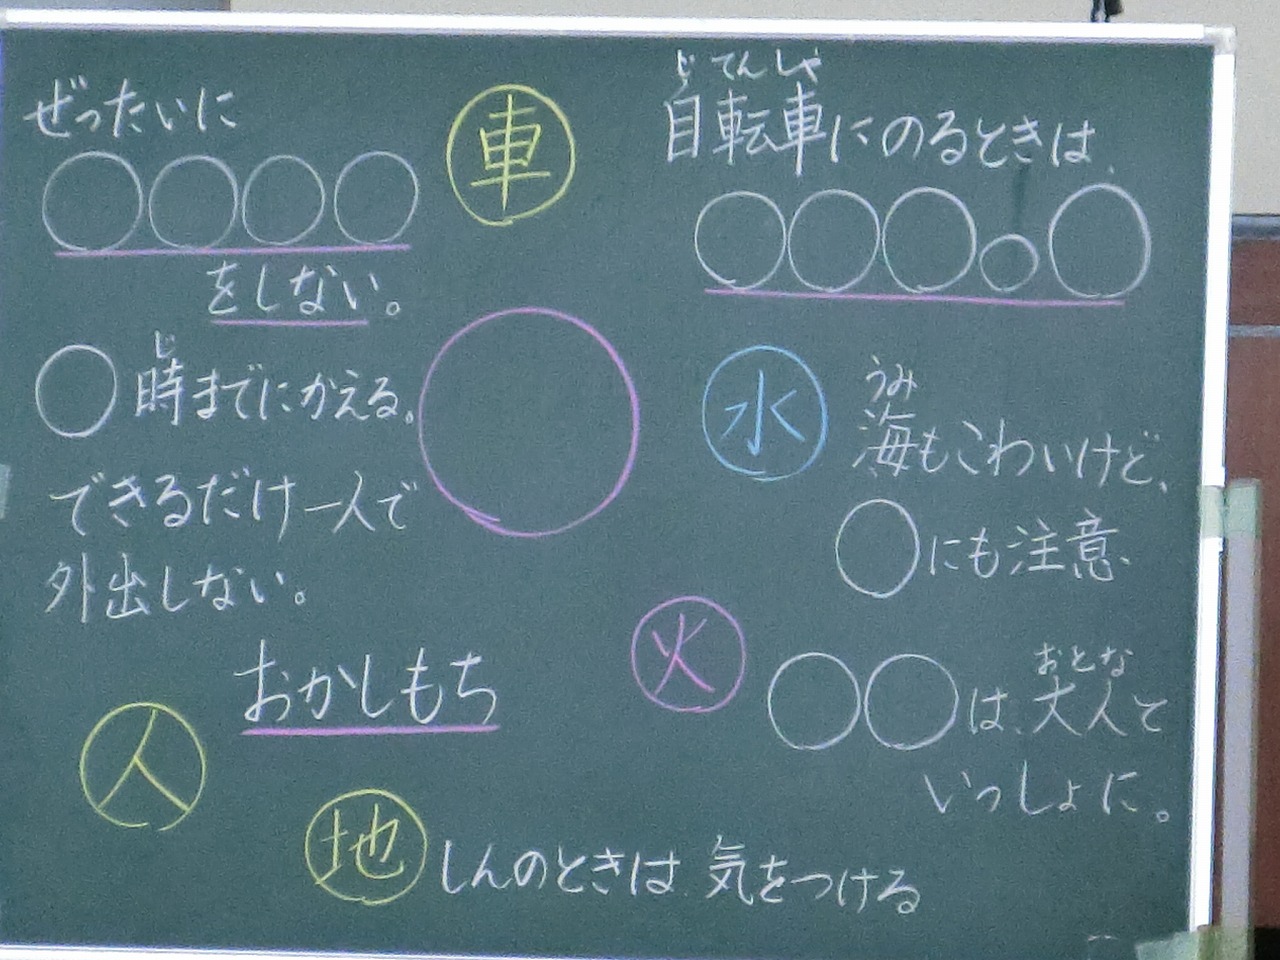 ぜったいに
○○○○
をしない。
車
じてんしゃ
自転車にのるときは、
○○○○○
じ
○時までにかえる。
できるだけ一人で
外出しない。
水
うみ
海もこわいけど、
○にも注意、
火
おとな
○○は、大人と
いっしょに。
おかしもち
人
地しんのときは 気をつける